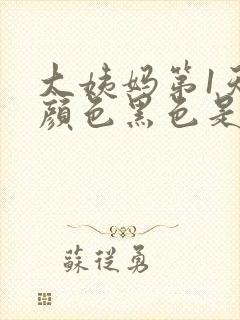 太姨妈第1天
颜色黑色是
蘇從勇